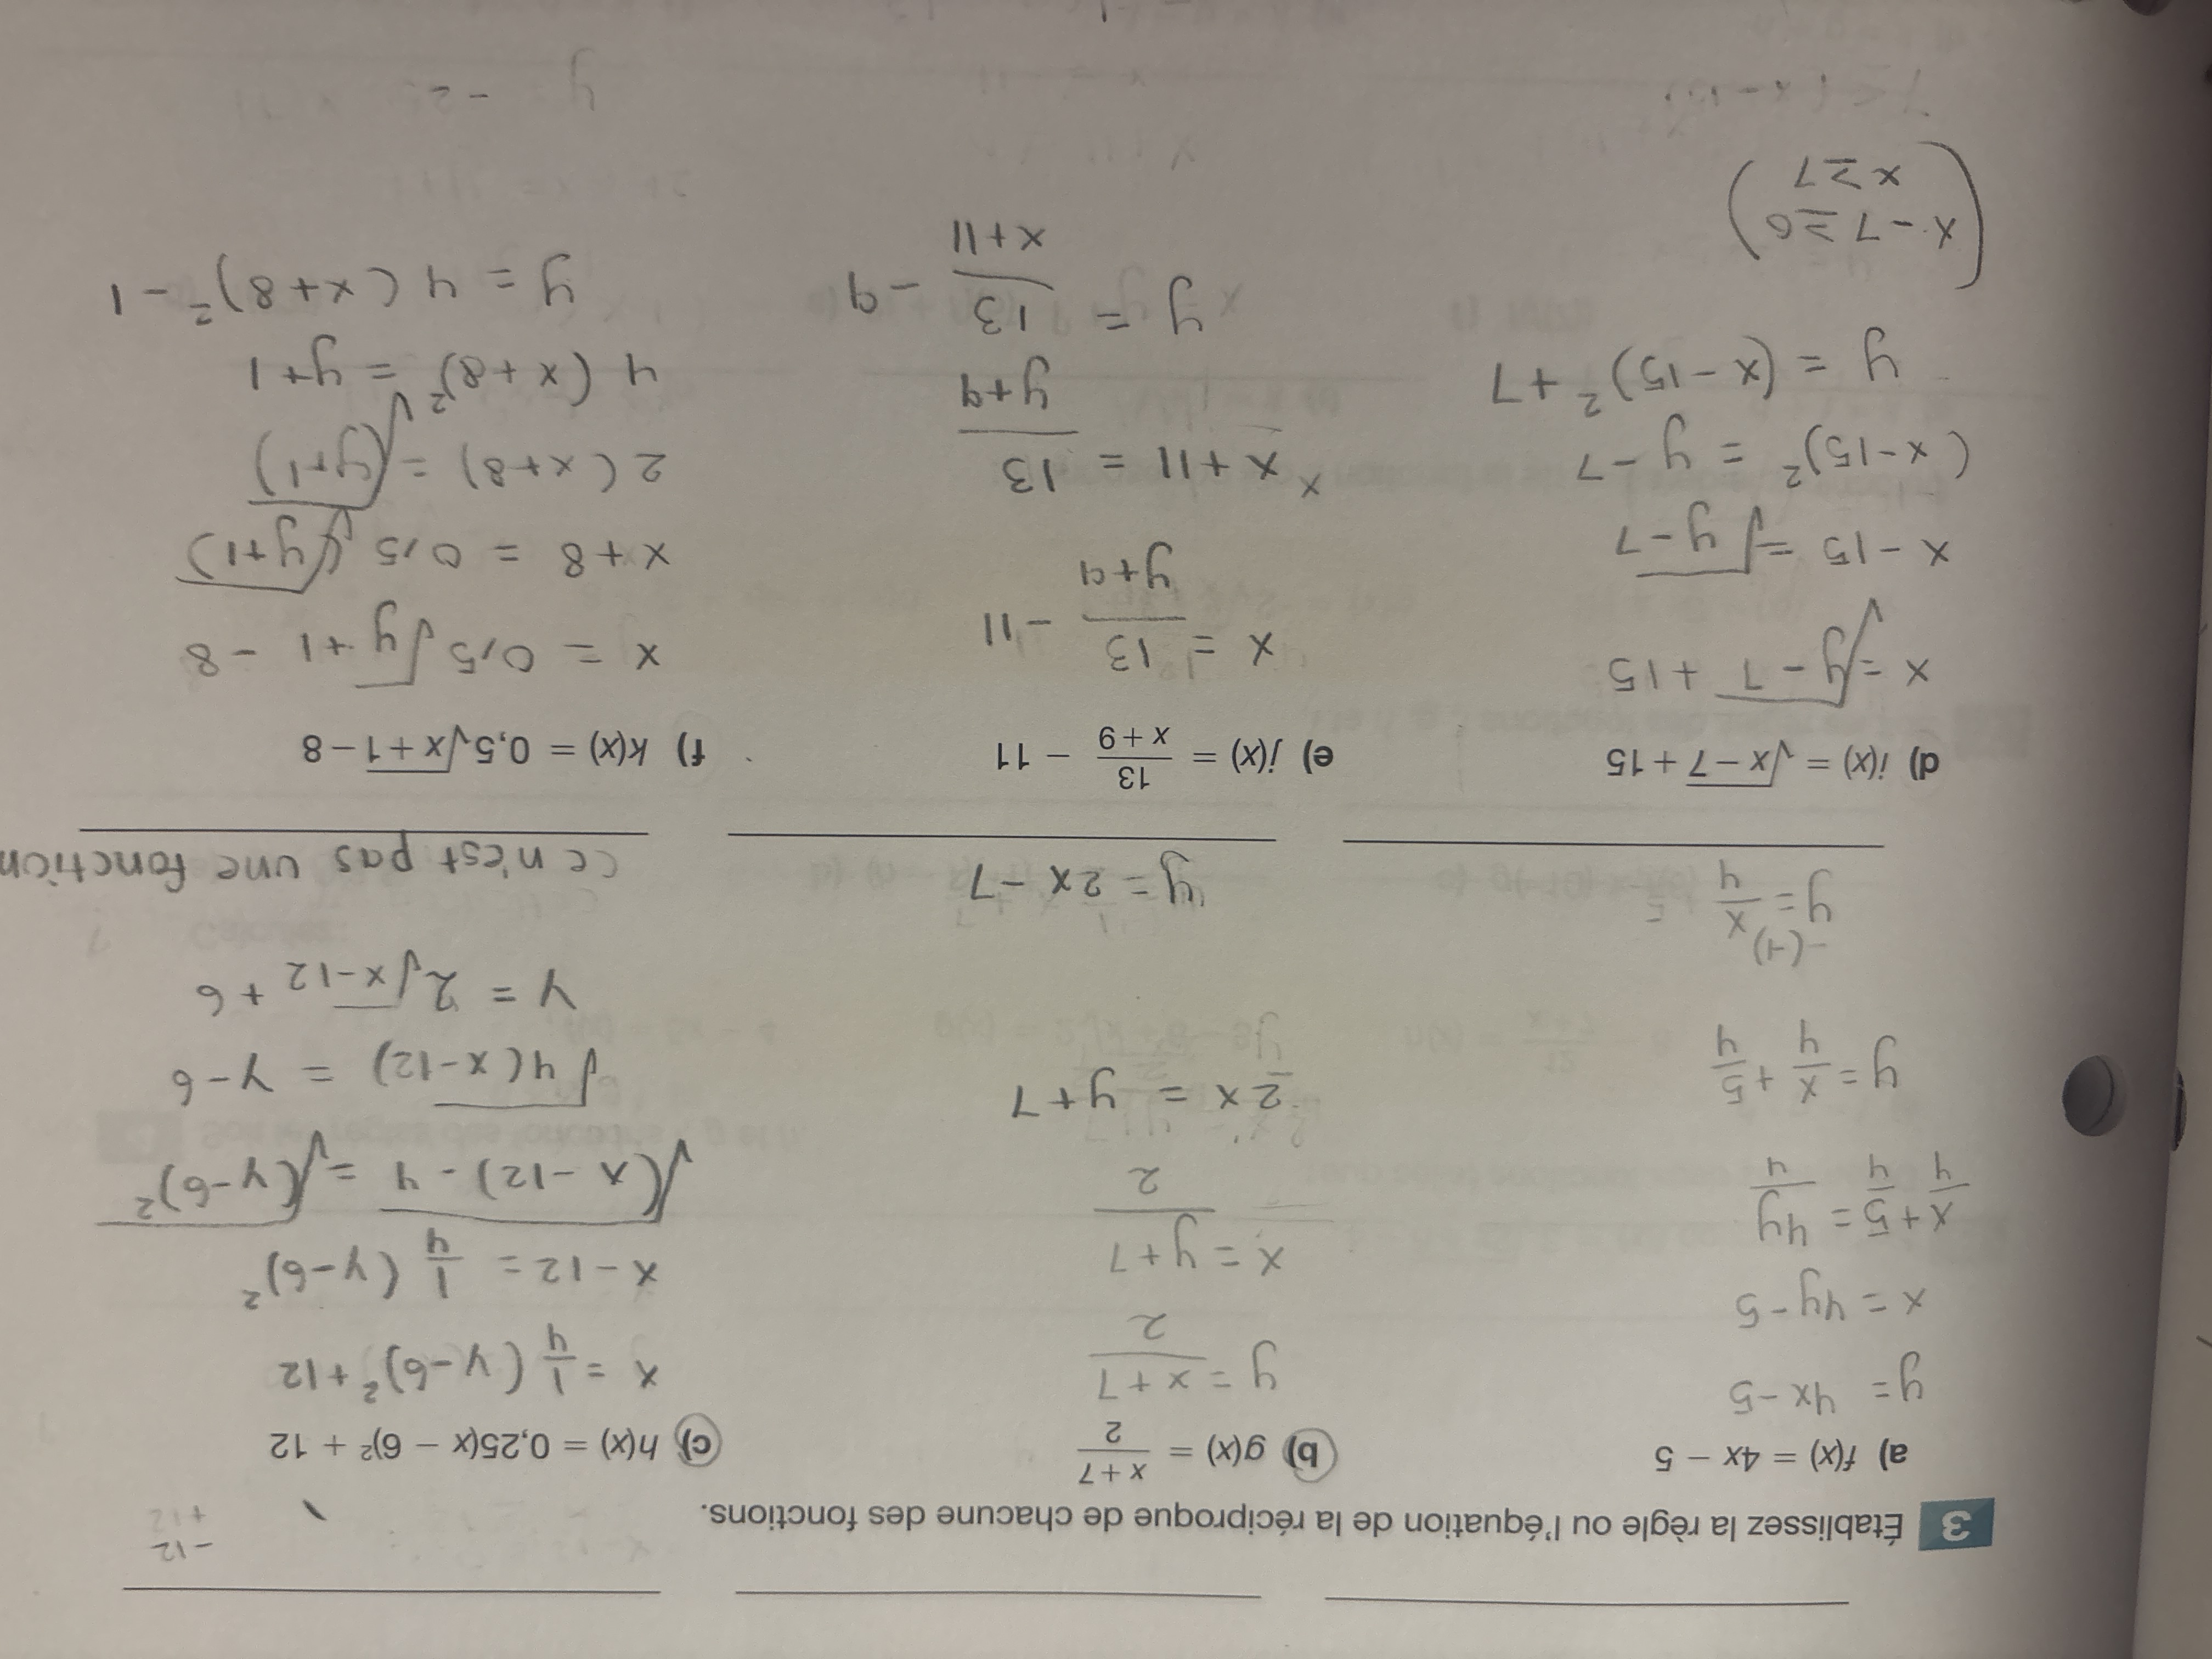 -12
+12
3 Établissez la règle ou l'équation de la réciproque de chacune des fonctions.
a) f(x) = 4x − 5
y = 4x - 5
x = 4y - 5
x/4 + 5/4 = 4y/4
y = x/4 + 5/4
-(-1)
y = x/4
b) g(x) = (x + 7)/2
y = (x + 7)/2
x = (y + 7)/2
2x = y + 7
y = 2x - 7
c) h(x) = 0,25(x − 6)² + 12
x = 1/4 (y-6)² + 12
x - 12 = 1/4 (y-6)²
√(x-12) · 4 = √(y-6)²
√4(x-12) = y - 6
y = 2√x-12 + 6
ce n'est pas une fonction
d) i(x) = √x − 7 + 15
x = √y - 7 + 15
x - 15 = √y - 7
(x-15)² = y - 7
y = (x-15)² + 7
(x - 7 ≥ 0
x ≥ 7)
e) j(x) = 13/(x + 9) − 11
x = 13/(y+9) - 11
x + 11 = 13/(y+9)
y = 13/(x+11) - 9
f) k(x) = 0,5√x + 1 − 8
x = 0,5√y + 1 - 8
x + 8 = 0,5√(y+1)
2(x+8) = √(y+1)
4(x+8)² = y+1
y = 4(x+8)² - 1